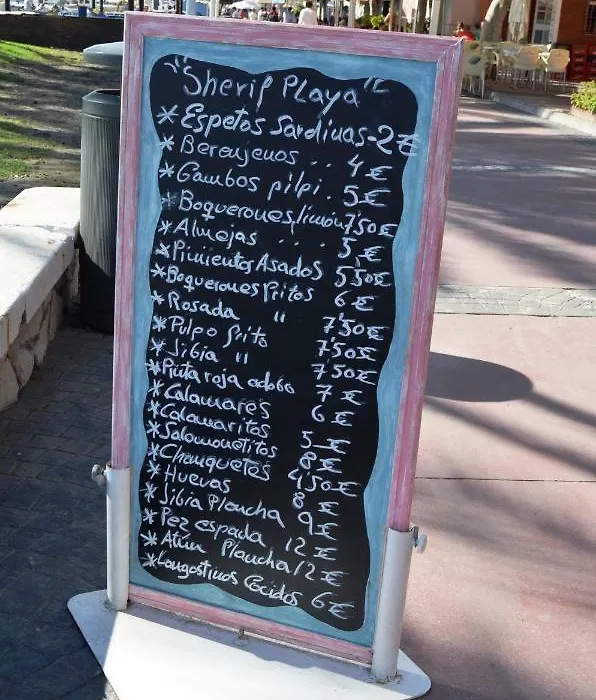 "Sherif Playa"
*Espetos Sardinas-2€
*Berenjenas .. 4€
*Gambas pilpi. 5€
*Boquerones, limon 7,50€
*Almejas .... 5,€
*Pimientos Asados 5,50€
*Boquerones fritos 6€
*Rosada " 7'50€
*Pulpo frito 7'50€
*Jibia " 7'50€
*Pinta roja adobo 7€
*Calamares 6€
*Calamaritos 5€
*Salomonetitos 8€
*Chanquetes 4,50€
*Huevas 8€
*Jibia Plancha 9€
*Pez espada 12€
*Atún Plancha 12€
*Langostinos Cocidos 6€